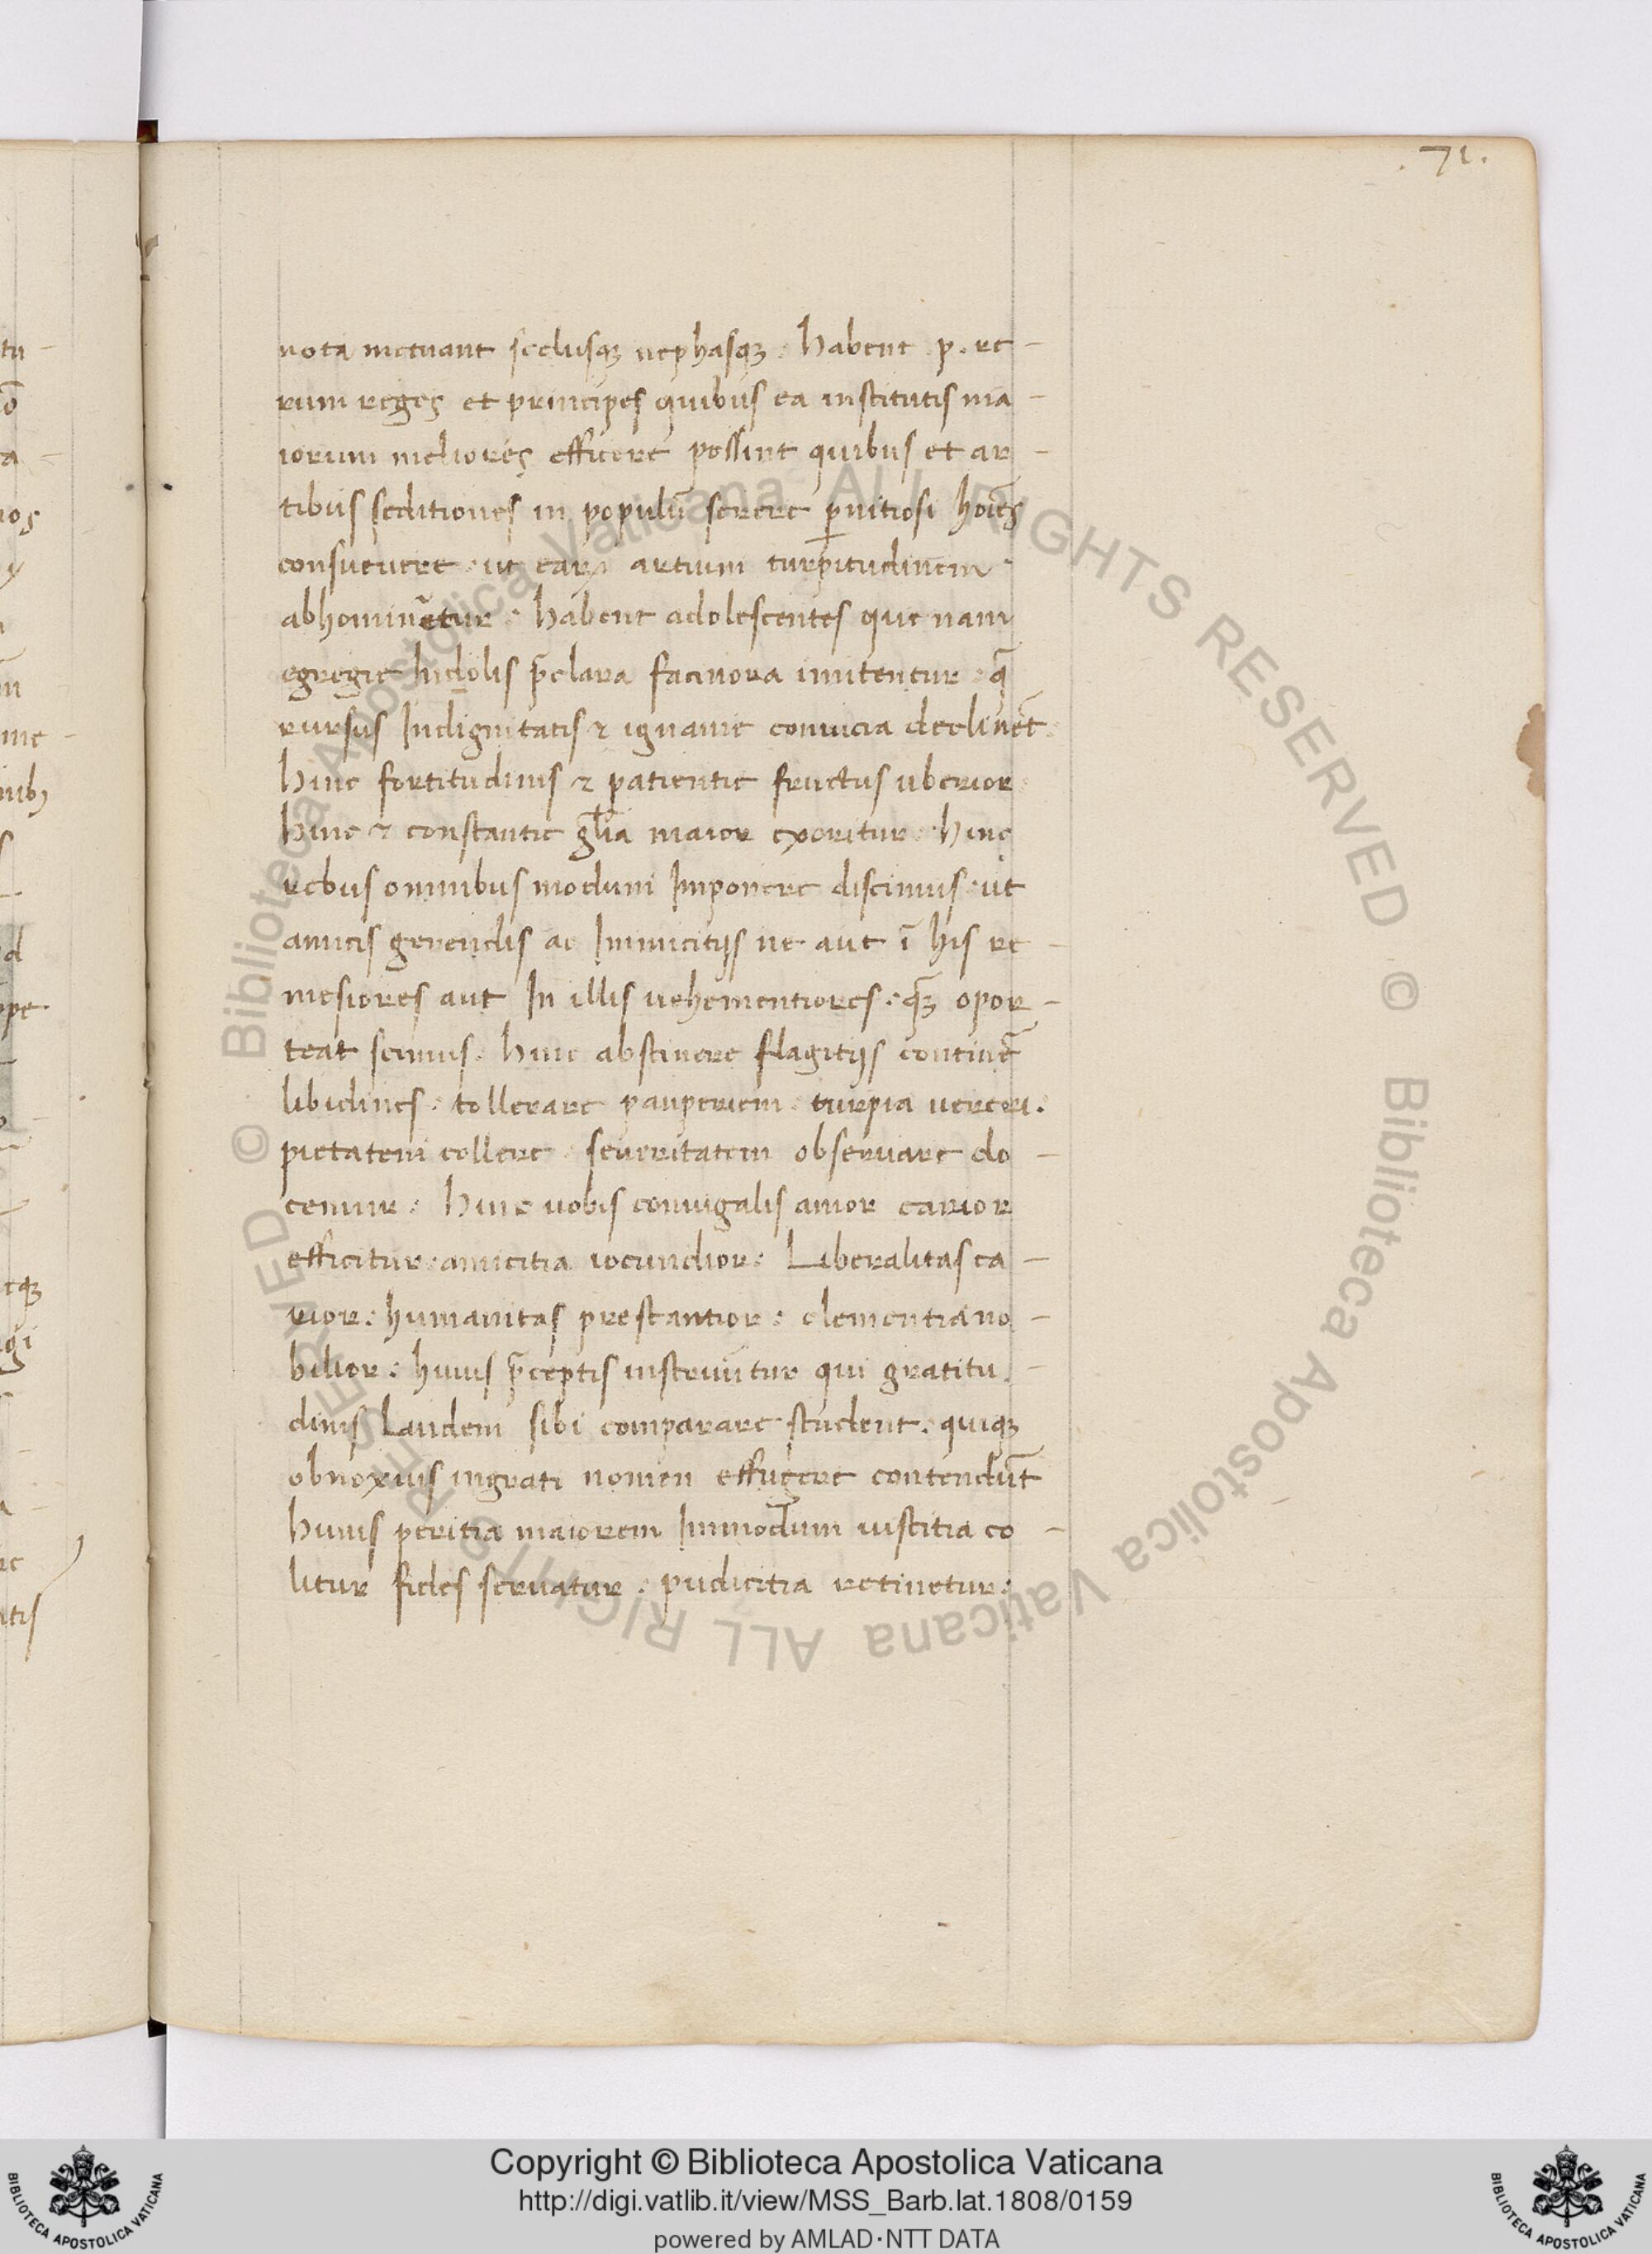 .71.
nota metuant scelusqꝫ nephasqꝫ. Habent .p. re-
rum reges et principes quibus ea institutis ma-
iorum meliores efficere possint quibus et ar-
tibus seditiones in populū serere ꝑnitiosi hoīes
consuevere. ut eaꝝ artium turpitudinem
abhominētur. Habent adolescentes que nam
egregie Indolis p̄clara facinora imitentur. q̄
rursus Indignitatis ⁊ ignauie conuicia declinēt.
Hinc fortitudinis ⁊ patientie fructus uberior
hinc ⁊ constantie gl̄ia maior exoritur. Hinc
rebus omnibus modum Imponere discimus. ut
amicis gerendis ac Inimicitijs ne aut ī his re-
mesiores aut In illis uehementiores. qꝫ̄ opor-
teat simus. Hinc abstinere flagitijs continē
libidines. tollerare pauperiem. turpia uereri.
pietatem collere. seueritatem obseruare do-
cemur. Hinc nobis coniugalis amor carior
efficitur. amicitia iocundior. Liberalitas ca-
rior. humanitas prestantior. clementia no-
bilior. huius p̄ceptis instruūtur qui gratitu-
dinis Laudem sibi comparare student. quiqꝫ
obnoxius ingrati nomen effugere contendūt
Huius peritia maiorem Inmodum iustitia co-
litur fides seruatur. pudicitia retinetur.
© Biblioteca Apostolica Vaticana ALL RIGHTS RESERVED © Biblioteca Apostolica Vaticana ALL RIGHTS RESERVED
Copyright © Biblioteca Apostolica Vaticana
http://digi.vatlib.it/view/MSS_Barb.lat.1808/0159
powered by AMLAD·NTT DATA
BIBLIOTECA APOSTOLICA VATICANA
BIBLIOTECA APOSTOLICA VATICANA